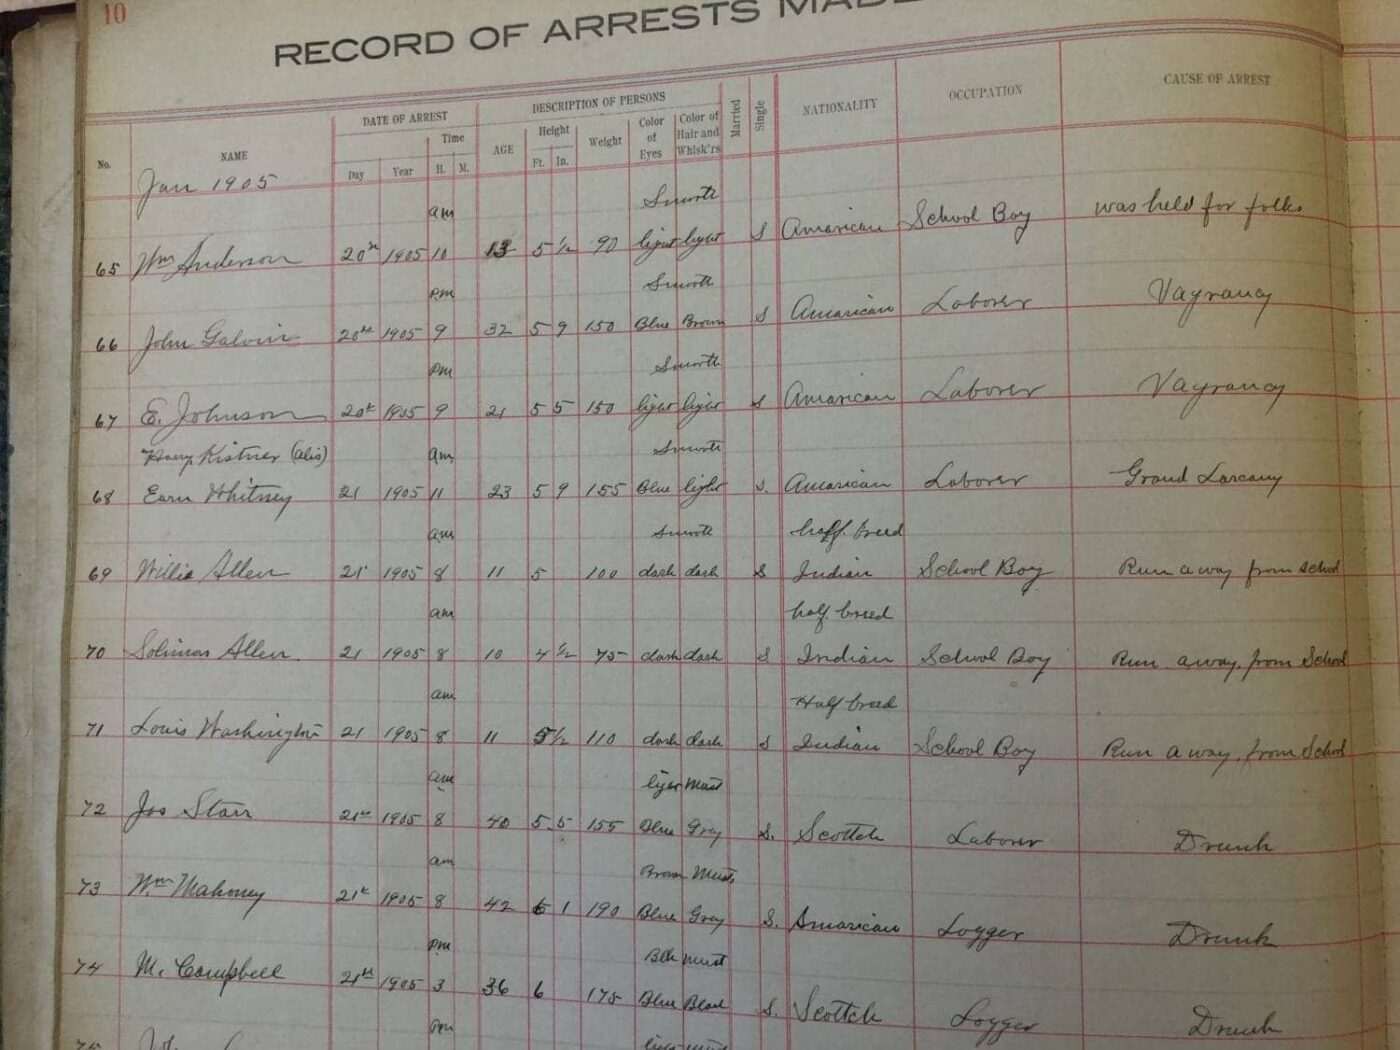 10
RECORD OF ARRESTS MADE
No. NAME DATE OF ARREST Day Year Time H. M. AGE DESCRIPTION OF PERSONS Height Ft. In. Weight Color of Eyes Color of Hair and Whisk'rs Married Single NATIONALITY OCCUPATION CAUSE OF ARREST
Jan 1905
am Smooth
65 Wm Anderson 20th 1905 10 13 5 1/2 90 light light S American School Boy was held for folks
pm Smooth
66 John Galvin 20th 1905 9 32 5 9 150 Blue Brown S American Laborer Vagrancy
pm Smooth
67 E. Johnson 20th 1905 9 21 5 5 150 light light S American Laborer Vagrancy
Harry Kistner (alis) am Smooth
68 Earn Whitney 21 1905 11 23 5 9 155 Blue light S. American Laborer Grand Larcany
am Smooth half breed
69 Willie Allen 21 1905 8 11 5 100 dark dark S Indian School Boy Run away from school
am half breed
70 Allen 21 1905 8 10 4 1/2 75 dark dark S Indian School Boy Run away, from School
am Half breed
71 Louis Washington 21 1905 8 11 5 1/2 110 dark dark S Indian School Boy Run away, from School
am light Must
72 Jos Starr 21st 1905 8 40 5 5 155 Blue Grey S. Scottch Laborer Drunk
am Brown Must.
73 Wm Mahoney 21st 1905 8 42 6 1 190 Blue Grey S. American Logger Drunk
pm Blk must
74 M. Campbell 21st 1905 3 36 6 175 Blue Black S. Scottch Logger Drunk
pm
75